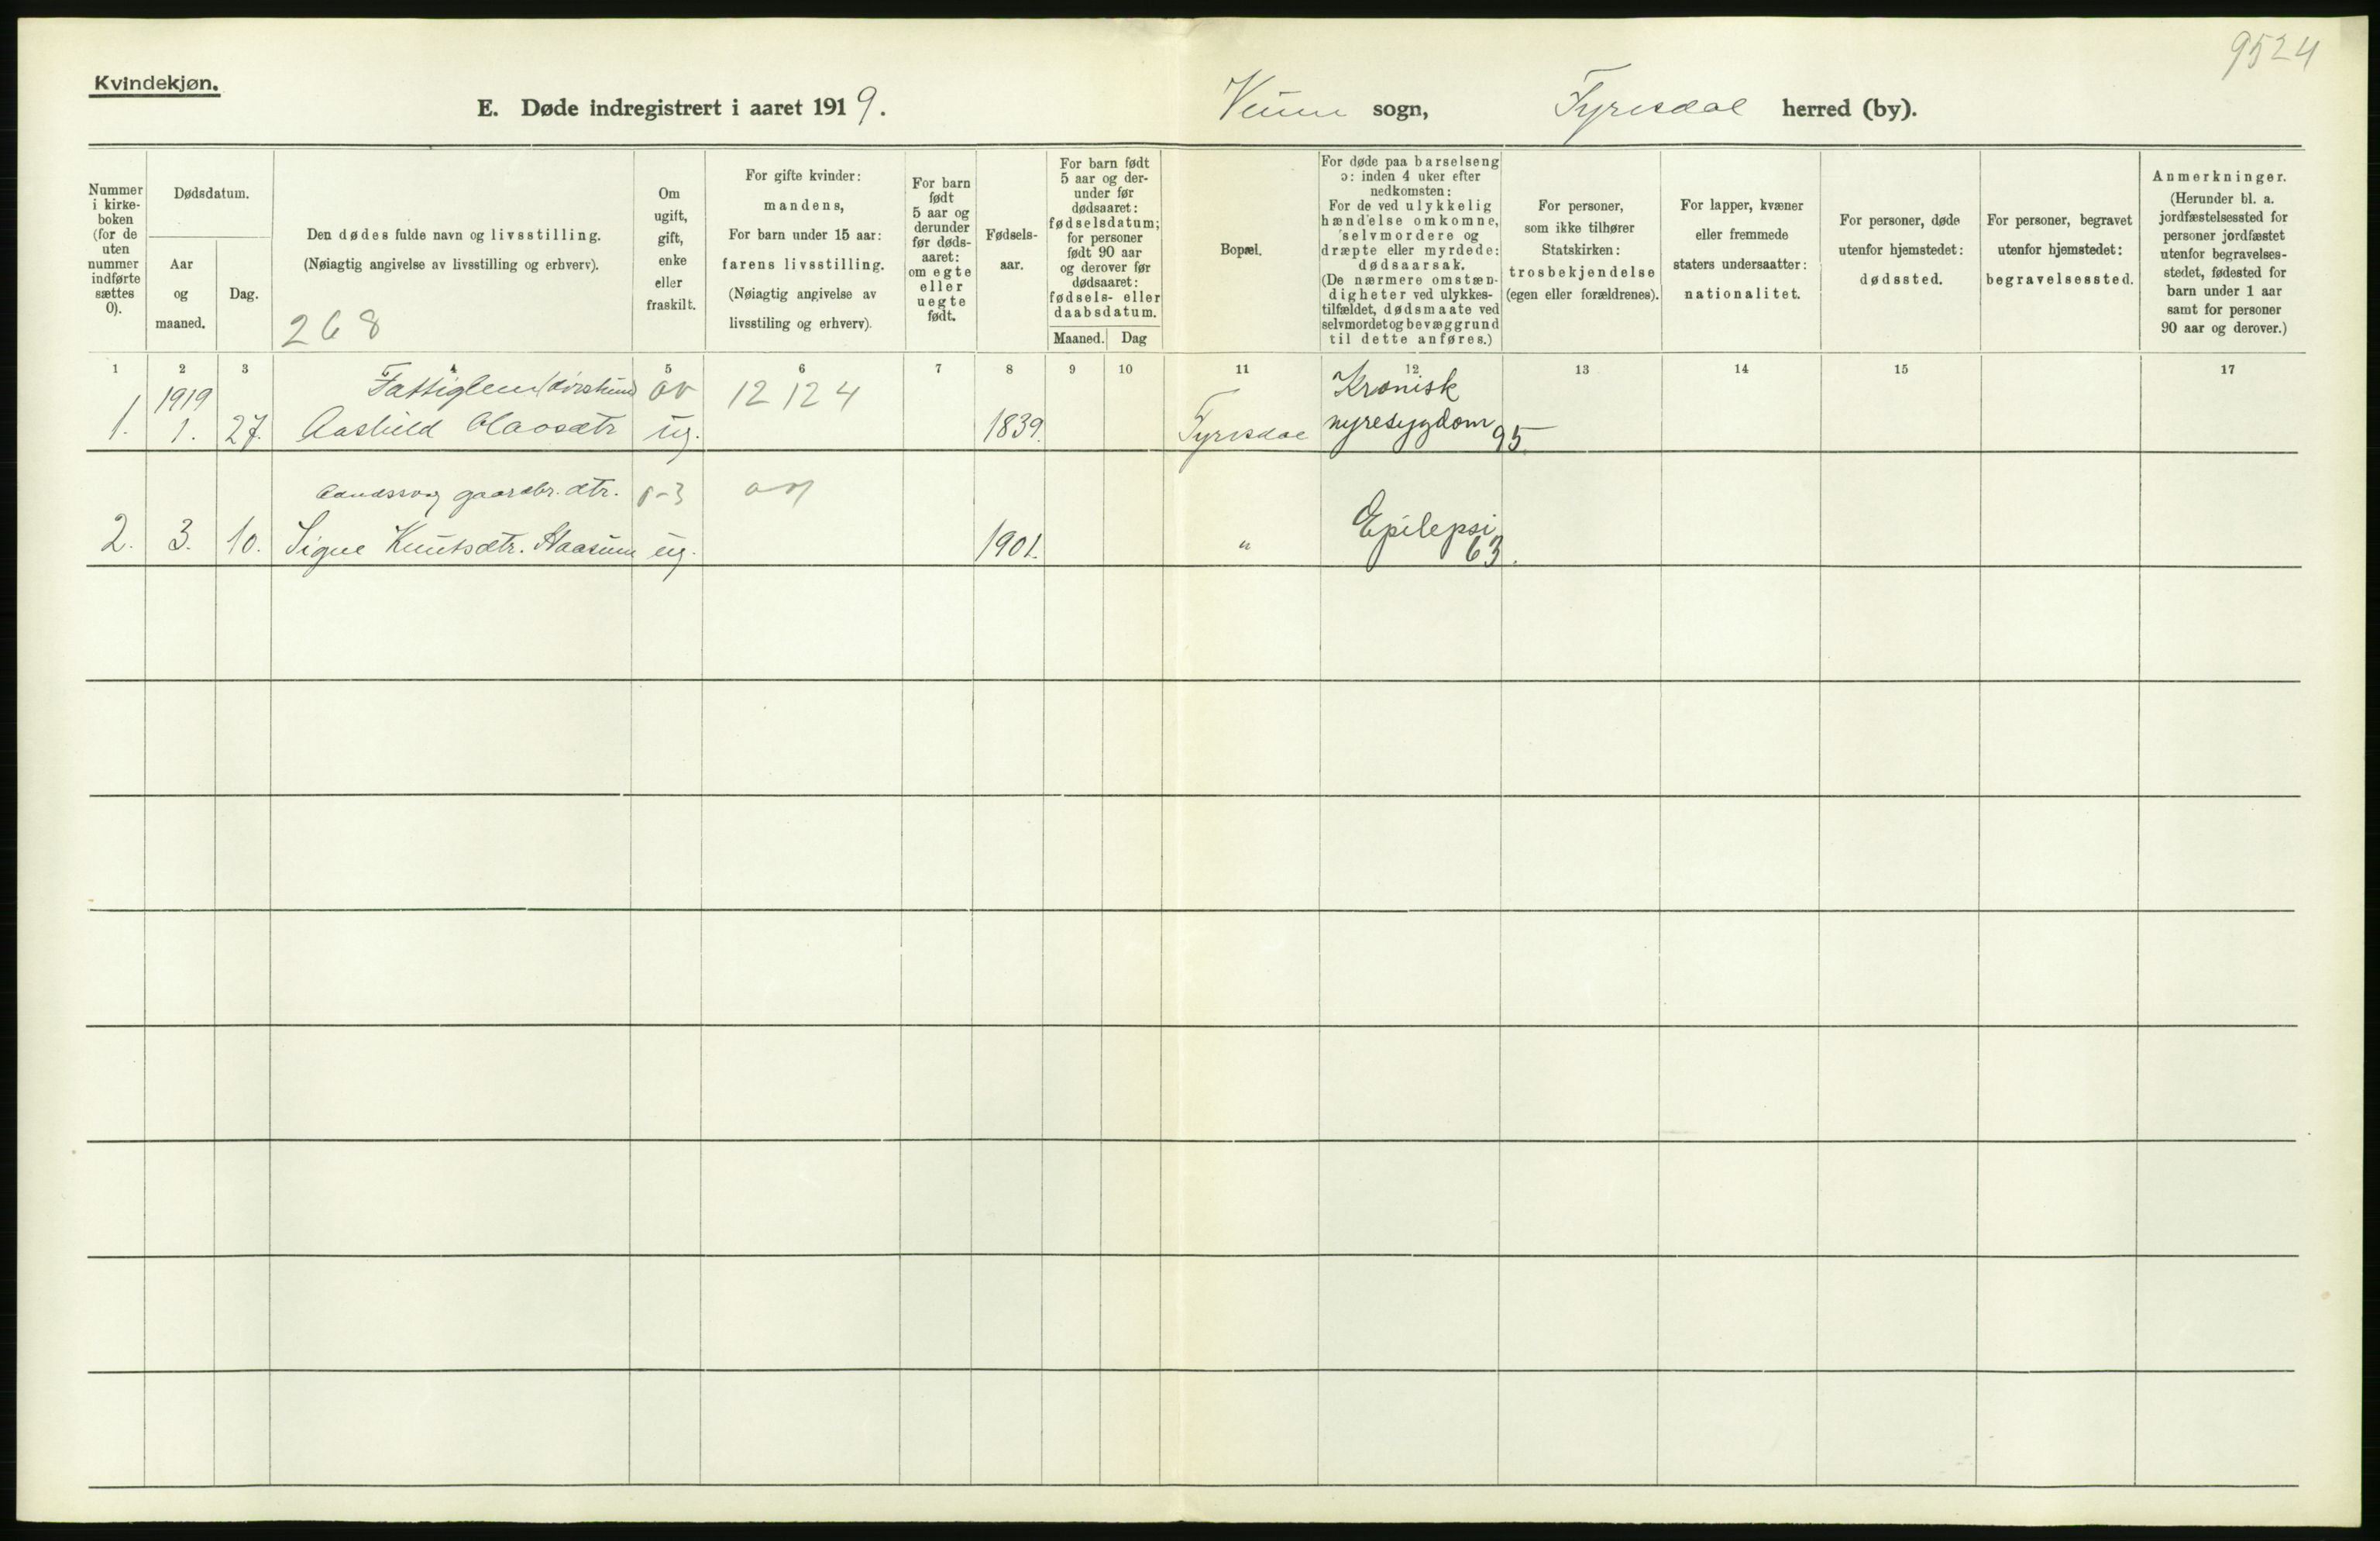 9524
Kvindekjøn.
E. Døde indregistrert i aaret 1919.
Veum sogn, Fyresdal herred (by).
Nummer i kirke-boken (for de uten nummer indførte sættes 0).
Dødsdatum.
Aar og maaned.
Dag.
Den dødes fulde navn og livsstilling.
(Nøiagtig angivelse av livsstilling og erhverv).
268
Om ugift, gift, enke eller fraskilt.
For gifte kvinder:
mandens,
For barn under 15 aar:
farens livsstilling.
(Nøiagtig angivelse av
livsstiling og erhverv).
For barn født 5 aar og derunder før døds-aaret: om egte eller uegte født.
Fødsels-aar.
For barn født
5 aar og der-
under før
dødsaaret:
fødselsdatum;
for personer
født 90 aar
og derover før
dødsaaret:
fødsels- eller
daabsdatum.
Maaned. Dag
Bopæl.
For døde paa barselseng
ɔ: inden 4 uker efter
nedkomsten:
For de ved ulykkelig
hændelse omkomne,
selvmordere og
dræpte eller myrdede:
dødsaarsak.
(De nærmere omstæn-
digheter ved ulykkes-
tilfældet, dødsmaate ved
selvmordet og bevæggrund
til dette anføres.)
For personer,
som ikke tilhører
Statskirken:
trosbekjendelse
(egen eller forældrenes).
For lapper, kvæner
eller fremmede
staters undersaatter:
nationalitet.
For personer, døde
utenfor hjemstedet:
dødssted.
For personer, begravet
utenfor hjemstedet:
begravelsessted.
Anmerkninger.
(Herunder bl. a.
jordfæstelsessted for
personer jordfæstet
utenfor begravelses-
stedet, fødested for
barn under 1 aar
samt for personer
90 aar og derover.)
1 2 3 4 5 6 7 8 9 10 11 12 13 14 15 17
1919 Fattiglem 12 124 Kronisk
1. 1. 27. Aashild Olavsdtr ug. 1839. Fyresdal nyresygdom 95.
Aandssvag gaardbr. dtr.
2. 3. 10. Signe Knutsdtr. Haasum ug. 1901. " Epilepsi
63.